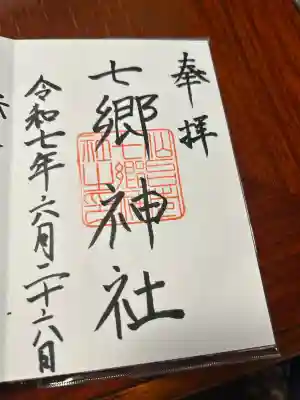 奉拝
七郷神社
令和七年六月二十六日